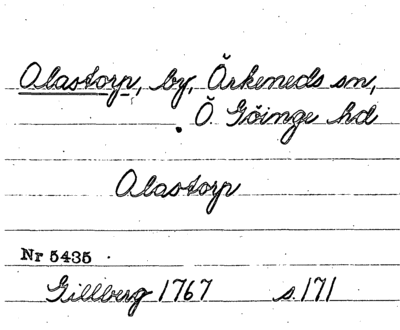 Olastorp, by, Örkeneds sn,
Ö Göinge hd
Olastorp
Nr 5435
Gillberg 1767 s. 171